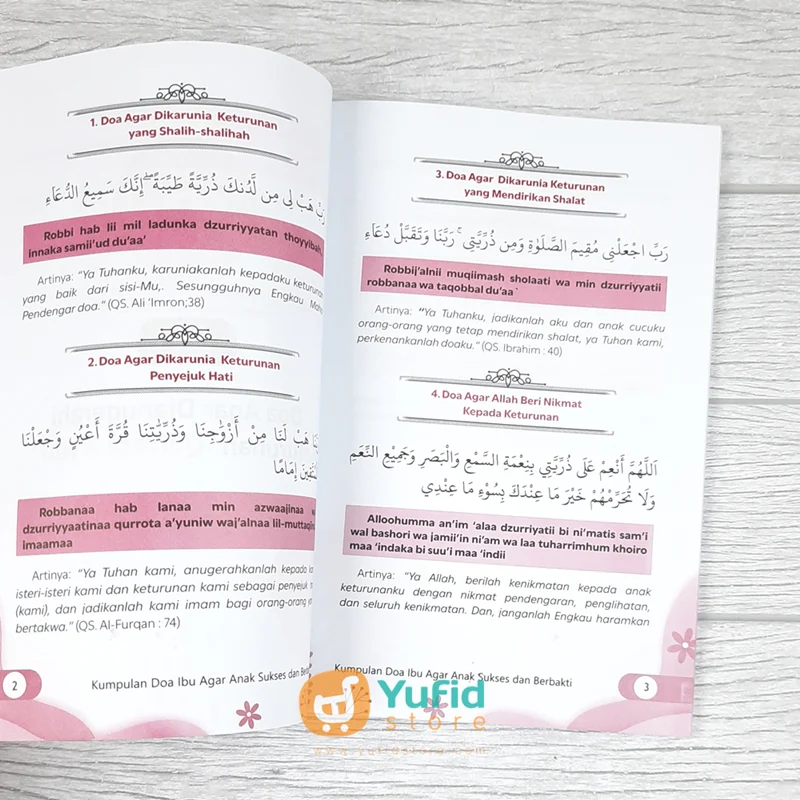 1. Doa Agar Dikarunia Keturunan
yang Shalih-shalihah
رَبِّ هَبْ لِي مِن لَّدُنكَ ذُرِّيَّةً طَيِّبَةً ۖ إِنَّكَ سَمِيعُ الدُّعَاءِ
Robbi hab lii mil ladunka dzurriyyatan thoyyibah,
innaka samii'ud du'aa'
Artinya: "Ya Tuhanku, karuniakanlah kepadaku keturunan
yang baik dari sisi-Mu,. Sesungguhnya Engkau Maha
Pendengar doa." (QS. Ali 'Imron;38)
2. Doa Agar Dikarunia Keturunan
Penyejuk Hati
هَبْ لَنَا مِنْ أَزْوَٰجِنَا وَذُرِّيَّٰتِنَا قُرَّةَ أَعْيُنٍ وَجْعَلْنَا
إِمَامًا
Robbanaa hab lanaa min azwaajinaa
dzurriyyaatinaa qurrota a'yuniw waj'alnaa lil-muttaqi
imaamaa
Artinya: "Ya Tuhan kami, anugerahkanlah kepada
isteri-isteri kami dan keturunan kami sebagai penyejuk
(kami), dan jadikanlah kami imam bagi orang-orang
bertakwa." (QS. Al-Furqan : 74)
2
Kumpulan Doa Ibu Agar Anak Sukses dan
3. Doa Agar Dikarunia Keturunan
yang Mendirikan Shalat
رَبِّ اجْعَلْنِي مُقِيمَ الصَّلَوٰةِ وَمِن ذُرِّيَّتِي ۚ رَبَّنَا وَتَقَبَّلْ دُعَاءِ
Robbij'alnii muqiimash sholaati wa min dzurriyyatii
robbanaa wa taqobbal du'aa`
Artinya: "Ya Tuhanku, jadikanlah aku dan anak cucuku
orang-orang yang tetap mendirikan shalat, ya Tuhan kami,
perkenankanlah doaku." (QS. Ibrahim : 40)
4. Doa Agar Allah Beri Nikmat
Kepada Keturunan
اَللَّهُمَّ أَنْعِمْ عَلَى ذُرِّيَّتِي بِنِعْمَةِ السَّمْعِ وَالْبَصَرِ وَجَمِيْعِ النِّعَمِ
وَلَا تُحَرِّمْهُمْ خَيْرَ مَا عِنْدَكَ بِسُوْءِ مَا عِنْدِي
Alloohumma an'im 'alaa dzurriyatii bi ni'matis sam'i
wal bashori wa jamii'in ni'am wa laa tuharrimhum khoiro
maa 'indaka bi suu'i maa 'indii
Artinya: "Ya Allah, berilah kenikmatan kepada anak
keturunanku dengan nikmat pendengaran, penglihatan,
dan seluruh kenikmatan. Dan, janganlah Engkau haramkan
Kumpulan Doa Ibu Agar Anak Sukses dan Berbakti
3
Yufid
store
www.yufidstore.com